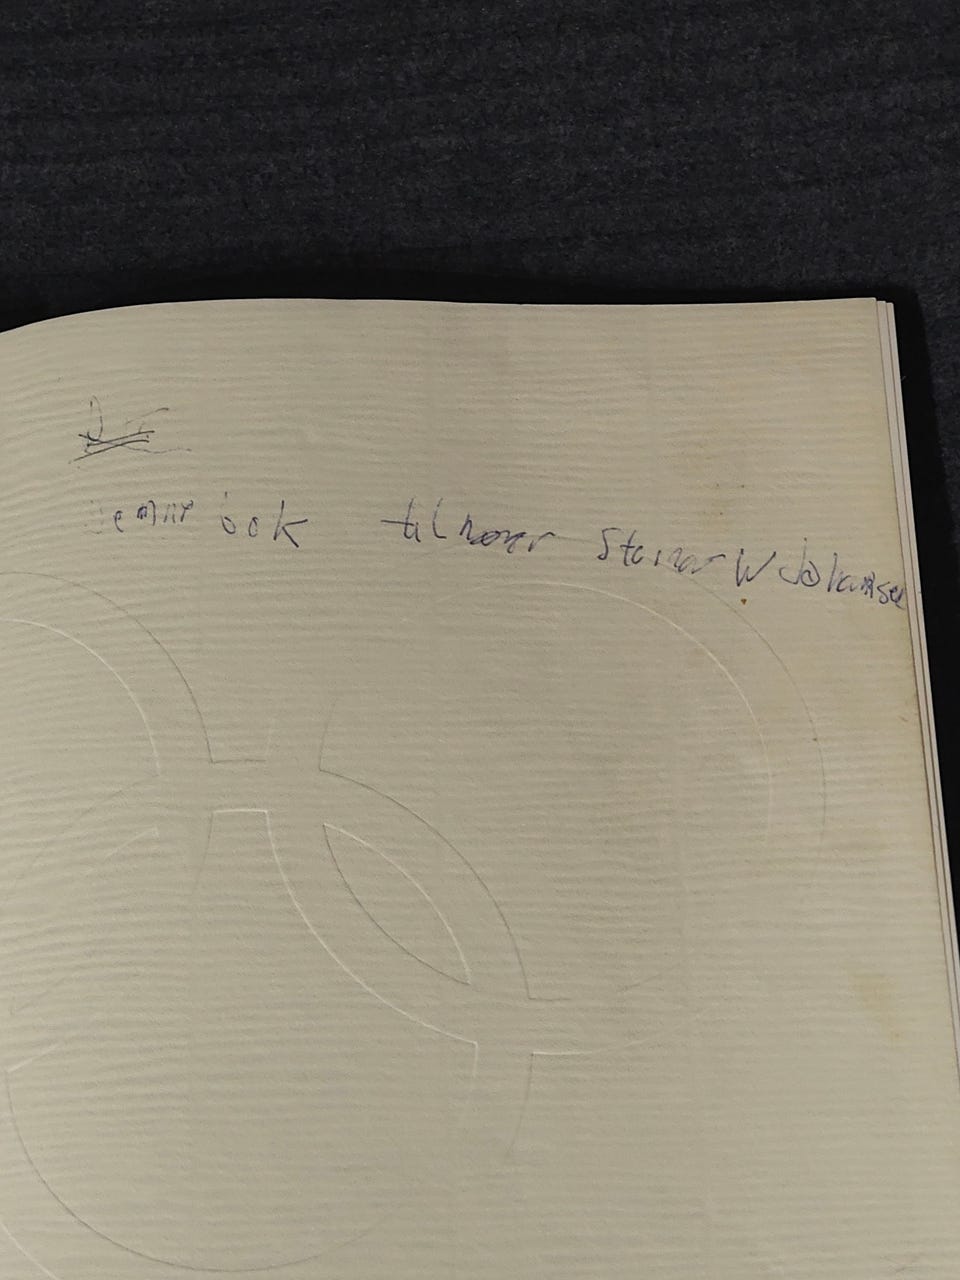 bok tilhører Steinar W Johansen